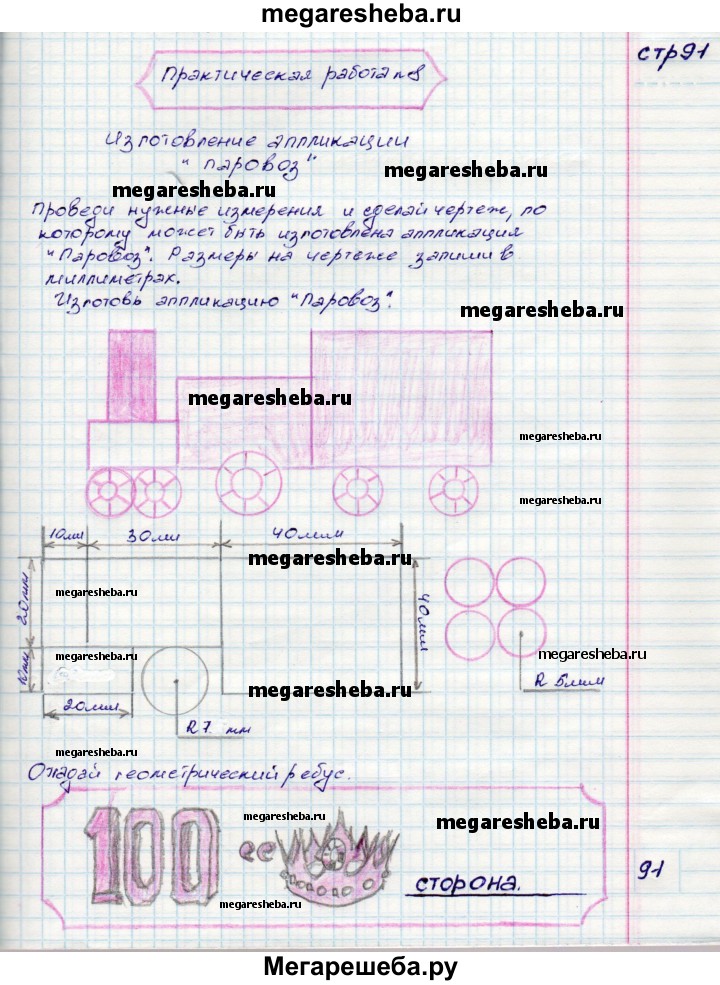 megaresheba.ru
стр91
Практическая работа №8
Изготовление аппликации
"Паровоз"
megaresheba.ru
megaresheba.ru
Проведи нужные измерения и сделай чертеж, по
которому может быть изготовлена аппликация
"Паровоз". Размеры на чертеже запиши в
миллиметрах.
Изготовь аппликацию "Паровоз".
megaresheba.ru
megaresheba.ru
megaresheba.ru
megaresheba.ru
10мм 30мм 40мм
megaresheba.ru
megaresheba.ru
20мм
40мм
10мм
megaresheba.ru
megaresheba.ru
R 5мм
20мм
R 7 мм
megaresheba.ru
Отгадай геометрический ребус.
100 ее
megaresheba.ru
megaresheba.ru
сторона.
91
megaresheba.ru
Мегарешеба.ру